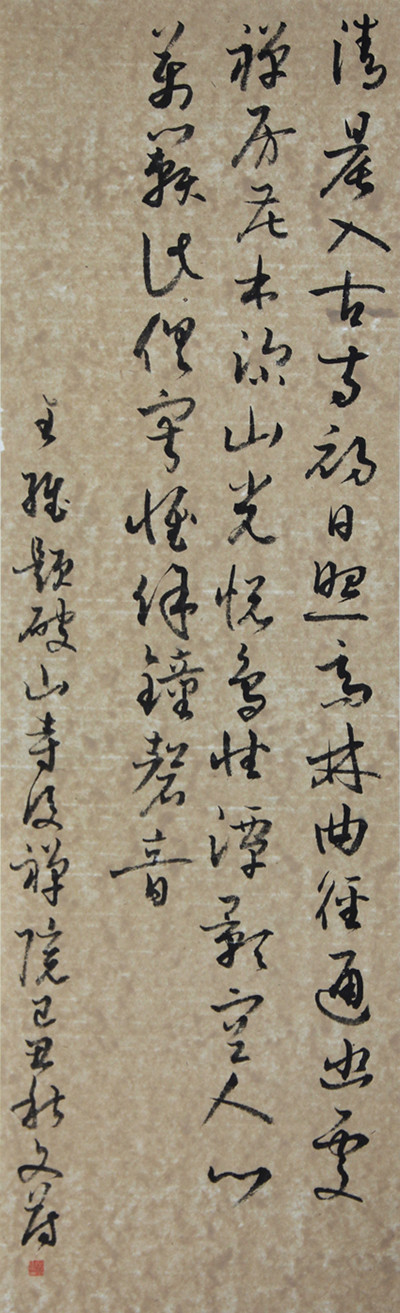 清晨入古寺初日照高林曲径通幽处
禅房花木深山光悦鸟性潭影空人心
万籁此俱寂惟余钟磬音
王维题破山寺后禅院己丑秋文蔚